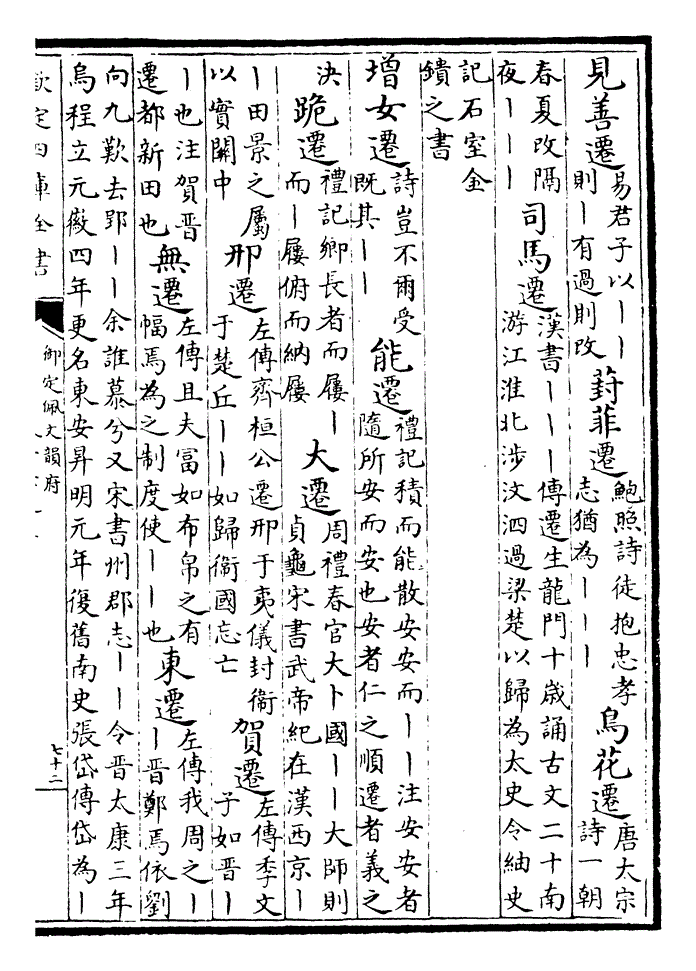 見善遷易君子以丨丨則丨有過則改 葑菲遷鮑照詩徒抱忠孝志猶為丨丨丨 鳥花遷唐太宗詩一朝
春夏改隔夜丨丨丨 司馬遷漢書丨丨丨傳遷生龍門十歲誦古文二十南游江淮北涉汶泗過梁楚以歸為太史令紬史
記石室金鐀之書
增女遷詩豈不爾受既其丨丨 能遷禮記積而能散安安而丨丨注安安者隨所安而安也安者仁之順遷者義之
決 跪遷禮記鄉長者而屨丨而丨屨俯而納屨 大遷周禮春官大卜國丨丨大師則貞龜宋書武帝紀在漢西京丨
丨田景之屬以實關中 邢遷左傳齊桓公遷邢于夷儀封衞于楚丘丨丨如歸衞國忘亡 賀遷左傳季文子如晉丨
丨也注賀晉遷都新田也 無遷左傳且夫富如布帛之有幅焉為之制度使丨丨也 東遷左傳我周之丨丨晉鄭焉依劉
向九歎去郢丨丨余誰慕兮又宋書州郡志丨丨令晉太康三年烏程立元徽四年更名東安昇明元年復舊南史張岱傳岱為丨
欽定四庫全書
御定佩文韻府
七十二